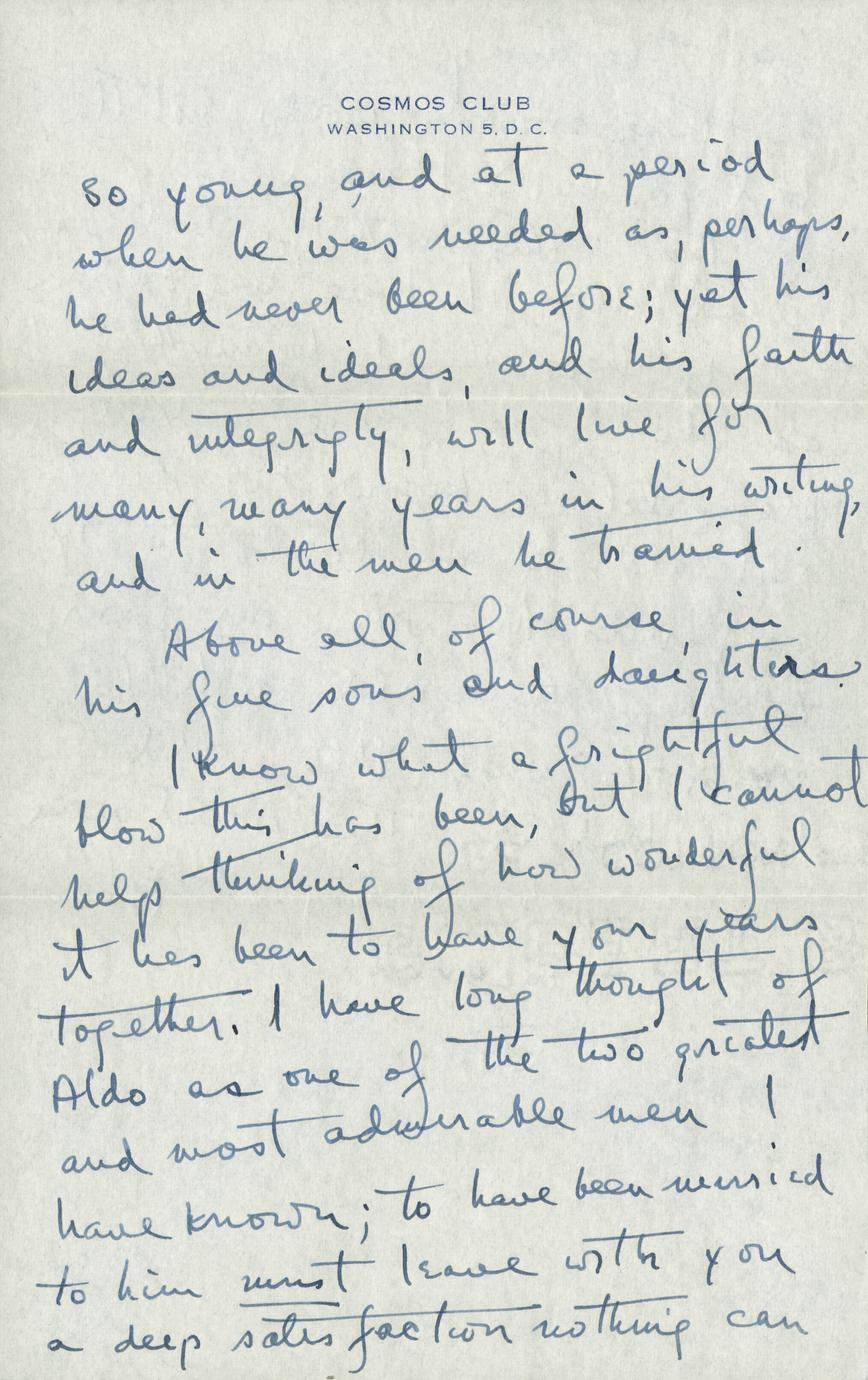 COSMOS CLUB
WASHINGTON 5, D. C.
so young, and at a period
when he was needed as, perhaps,
he had never been before; yet his
ideas and ideals, and his faith
and integrigty, will live for
many, many years in his writing,
and in the men he trained.
Above all, of course, in
his fine sons and daughters.
I know what a frightful
blow this has been, but I cannot
help thinking of how wonderful
it has been to have your years
together. I have long thought of
Aldo as one of the two greatest
and most admirable men I
have known; to have been married
to him must leave with you
a deep satisfaction nothing can